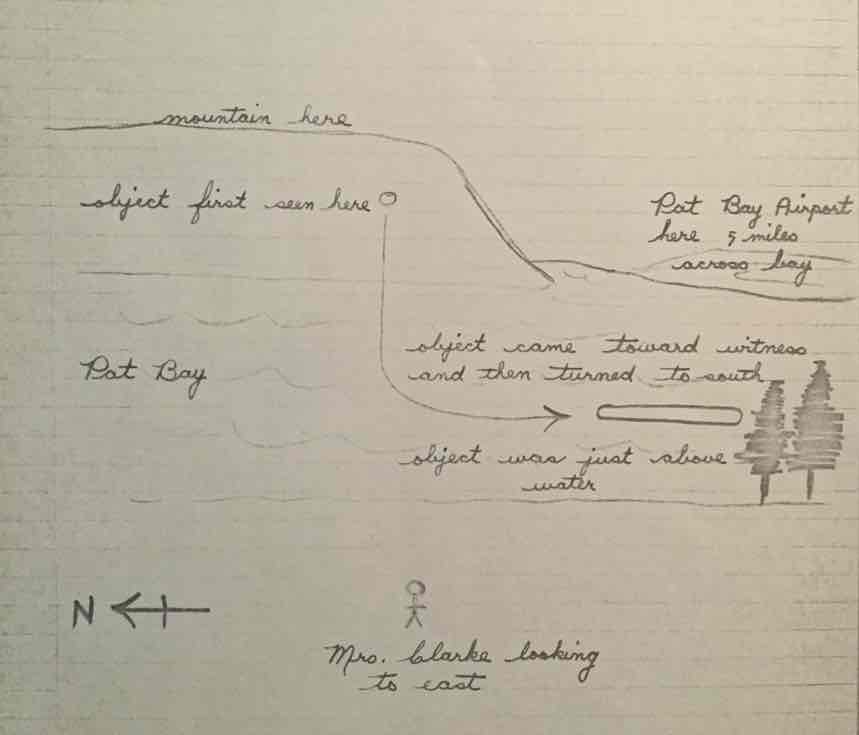 mountain here
object first seen here
Pat Bay Airport
here 5 miles
across bay
object came toward witness
and then turned to south
Pat Bay
object was just above
water
N
Mrs. Clarke looking
to east